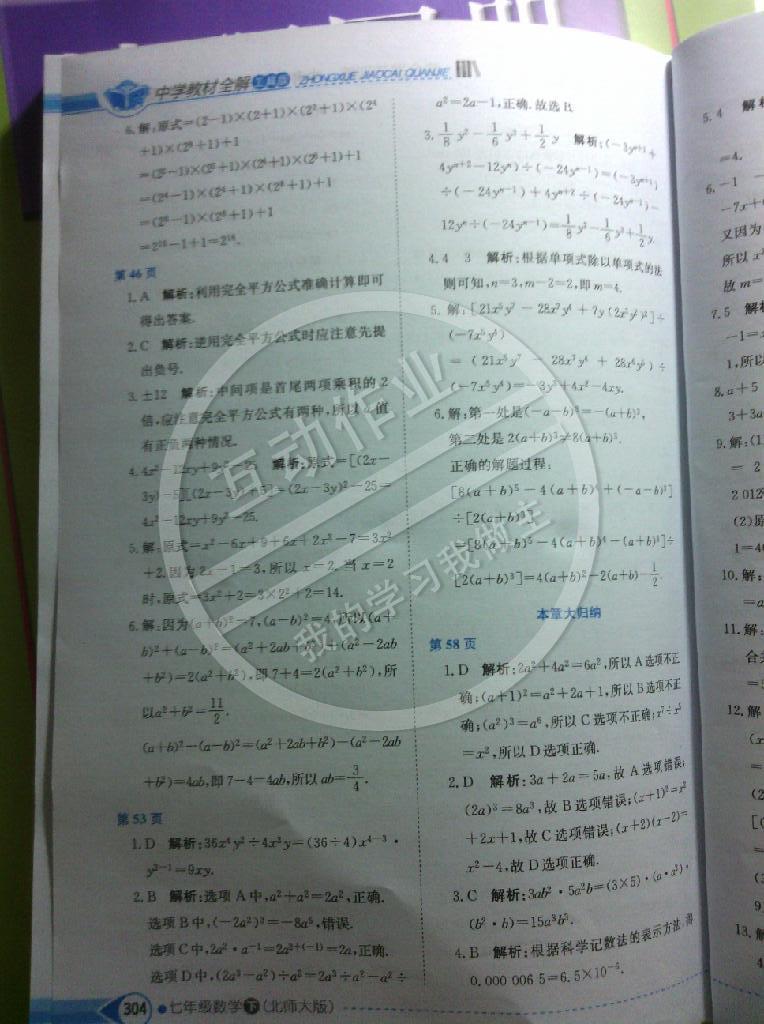 中学教材全解 工具版 ZHONGXUE JIAOCAI QUANJIE
6.解:原式=(2-1)×(2+1)×(2²+1)×(2⁴
+1)×(2⁸+1)+1
=(2²-1)×(2²+1)×(2⁴+1)×(2⁸+1)+1
=(2⁴-1)×(2⁴+1)×(2⁸+1)+1
=(2⁸-1)×(2⁸+1)+1
=2¹⁶-1+1=2¹⁶.
第46页
1.A 解析:利用完全平方公式准确计算即可
得出答案.
2.C 解析:逆用完全平方公式时应注意先提
出负号.
3.±12 解析:中间项是首尾两项乘积的2
倍,应注意完全平方公式有两种,所以 值
有正负两种情况.
4.4x²-12xy+9y²-25 解析:原式=[(2x-
3y)-5][(2x-3y)+5]=(2x-3y)²-25=
4x²-12xy+9y²-25.
5.解:原式=x²-6x+9+6x+2x²-7=3x²
+2.因为2x-1=3,所以x=2.当x=2
时,原式=3x²+2=3×2²+2=14.
6.解:因为(a+b)²=7,(a-b)²=4,所以(a+
b)²+(a-b)²=(a²+2ab+b²)+(a²-2ab
+b²)=2(a²+b²),即7+4=2(a²+b²),所
以a²+b²=11/2.
(a+b)²-(a-b)²=(a²+2ab+b²)-(a²-2ab
+b²)=4ab,即7-4=4ab,所以ab=3/4.
第53页
1.D 解析:36x⁴y²÷4x³y=(36÷4)x⁴⁻³·
y²⁻¹=9xy.
2.B 解析:选项A中,a²+a²=2a²,正确.
选项B中,(-2a²)³=-8a⁵,错误.
选项C中,2a²·a⁻¹=2a²⁺⁽⁻¹⁾=2a,正确.
选项D中,(2a³-a²)÷a²=2a³÷a²-a²÷
304 七年级数学 下 (北师大版)
a²=2a-1,正确.故选B.
3.1/8 y²-1/6 y³+1/2 y 解析:(-3yⁿ⁺¹+
4yⁿ⁺²-12yⁿ)÷(-24yⁿ⁻¹)=(-3yⁿ⁺¹)
÷(-24yⁿ⁻¹)+4yⁿ⁺²÷(-24yⁿ⁻¹)-
12yⁿ÷(-24yⁿ⁻¹)=1/8 y²-1/6 y³+1/2 y.
4.4 3 解析:根据单项式除以单项式的法
则可知,n=3,m-2=2,即m=4.
5.解:[21x⁵y⁷-28x⁷y⁶+7y(2x²y²)²]÷
(-7x⁵y⁶)
=(21x⁵y⁷-28x⁷y⁶+28x⁶y⁷)÷
(-7x⁵y⁶)=-3y+4x²-4xy.
6.解:第一处是(-a-b)³=-(a+b)³,
第二处是2(a+b)³≠8(a+b)³.
正确的解题过程:
[8(a+b)⁵-4(a+b)⁴+(-a-b)³]
÷[2(a+b)³]
=[8(a+b)⁵-4(a+b)⁴-(a+b)³]÷
[2(a+b)³]=4(a+b)²-2(a+b)-1/2.
本章大归纳
第58页
1.D 解析:2a²+4a²=6a²,所以A选项不正
确;(a+1)²=a²+2a+1,所以B选项不正
确;(a²)³=a⁶,所以C选项不正确;x⁷÷x⁵
=x²,所以D选项正确.
2.D 解析:3a+2a=5a,故A选项错误;
(2a)³=8a³,故B选项错误;(x+1)²=x²
+2x+1,故C选项错误;(x+2)(x-2)=
x²-4,故D选项正确.
3.C 解析:3ab²·5a²b=(3×5)·(a·a²)·
(b²·b)=15a³b³.
4.B 解析:根据科学记数法的表示方法,得
0.000 006 5=6.5×10⁻⁶.
5.4 解
=4.
6.-1
-7x+
又因为
所以x²
故m=
7.5 解
-1=
1,所以
8.a+5
3+3a
9.解:(1
=2
2 012
(2)原
1=4
10.解:
=a
11.解
合
=
12.解
(x
=
(2
[(
13.解
4
互动作业
我的学习我做主